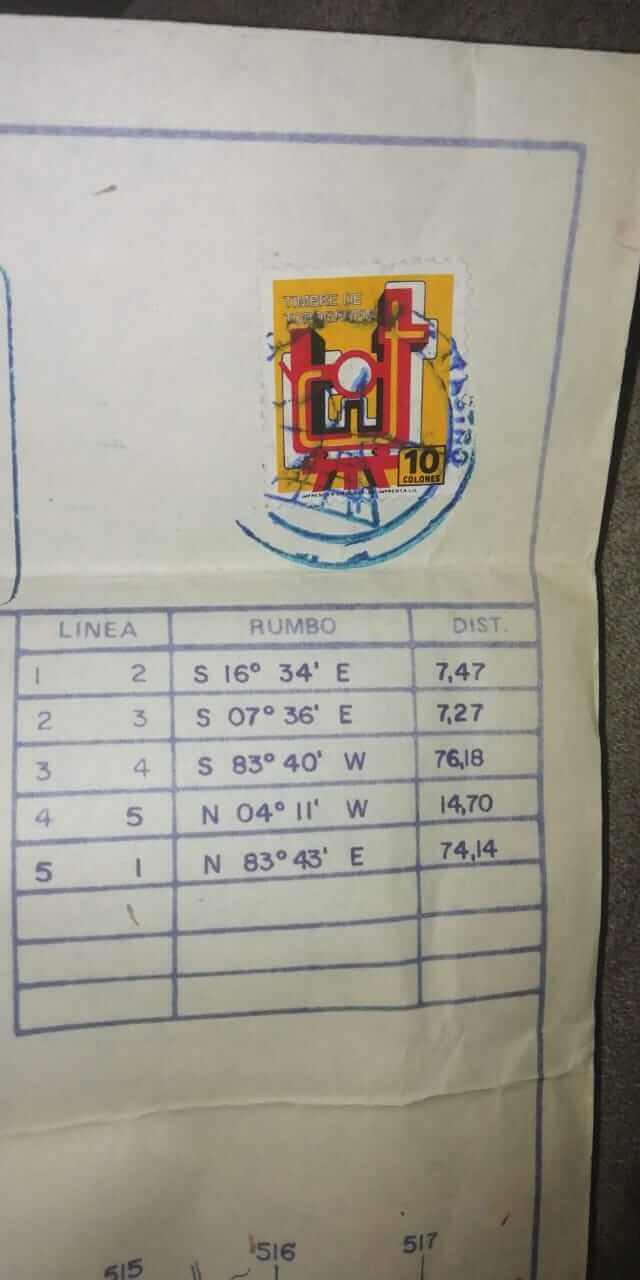 TIMBRE DE
10
COLONES
LINEA RUMBO DIST.
1 2 S 16° 34' E 7,47
2 3 S 07° 36' E 7,27
3 4 S 83° 40' W 76,18
4 5 N 04° 11' W 14,70
5 1 N 83° 43' E 74,14
515 516 517